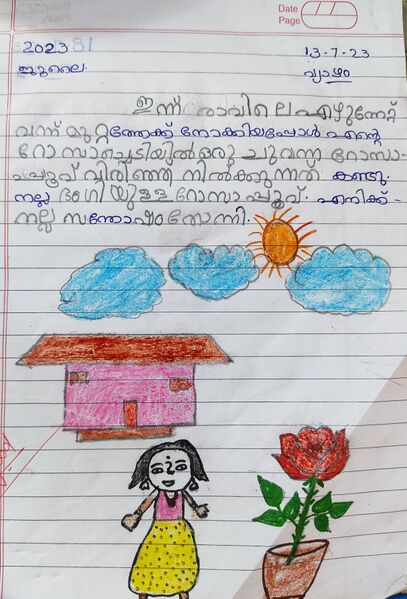 Date
Page
2023
13-7-23
ജൂലൈ
വ്യാഴം
ഇന്ന് രാവിലെ എഴുന്നേറ്റ്
വന്ന് മുറ്റത്തേക്ക് നോക്കിയപ്പോൾ എന്റെ
റോസാച്ചെടിയിൽ ഒരു ചുവന്ന റോസാ-
പ്പൂവ് വിരിഞ്ഞി നിൽക്കുന്നത് കണ്ടു.
നല്ല ഭംഗിയുള്ള റോസാപ്പൂവ്. എനിക്ക്-
നല്ല സന്തോഷം തോന്നി.